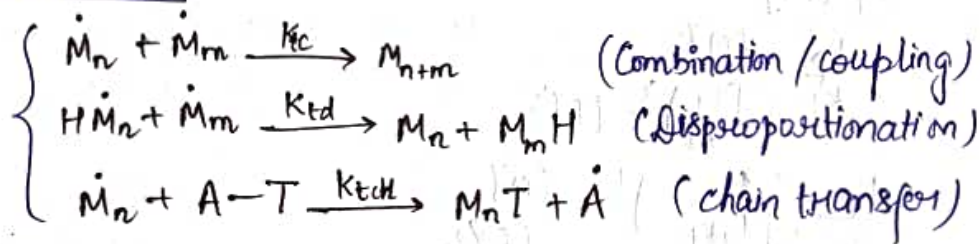 Ṁn + Ṁm —Ktc→ Mn+m (Combination / coupling)
HṀn + Ṁm —Ktd→ Mn + MmH (Disproportionation)
Ṁn + A–T —KtcH→ MnT + Ȧ (chain transfer)